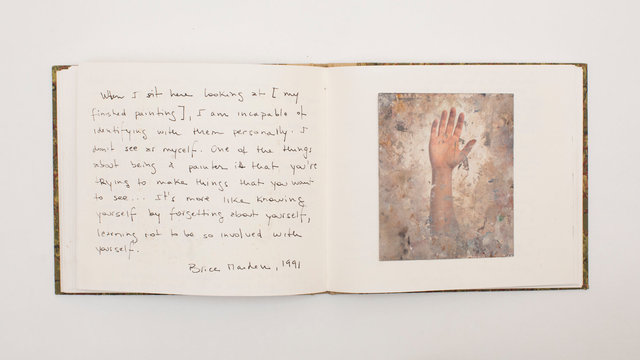 When I sit here looking at [my
finished painting], I am incapable of
identifying with them personally. I
don't see as myself. One of the things
about being a painter is that you're
trying to make things that you want
to see... It's more like knowing
yourself by forgetting about yourself,
learning not to be so involved with
yourself.
Brice Marden, 1991